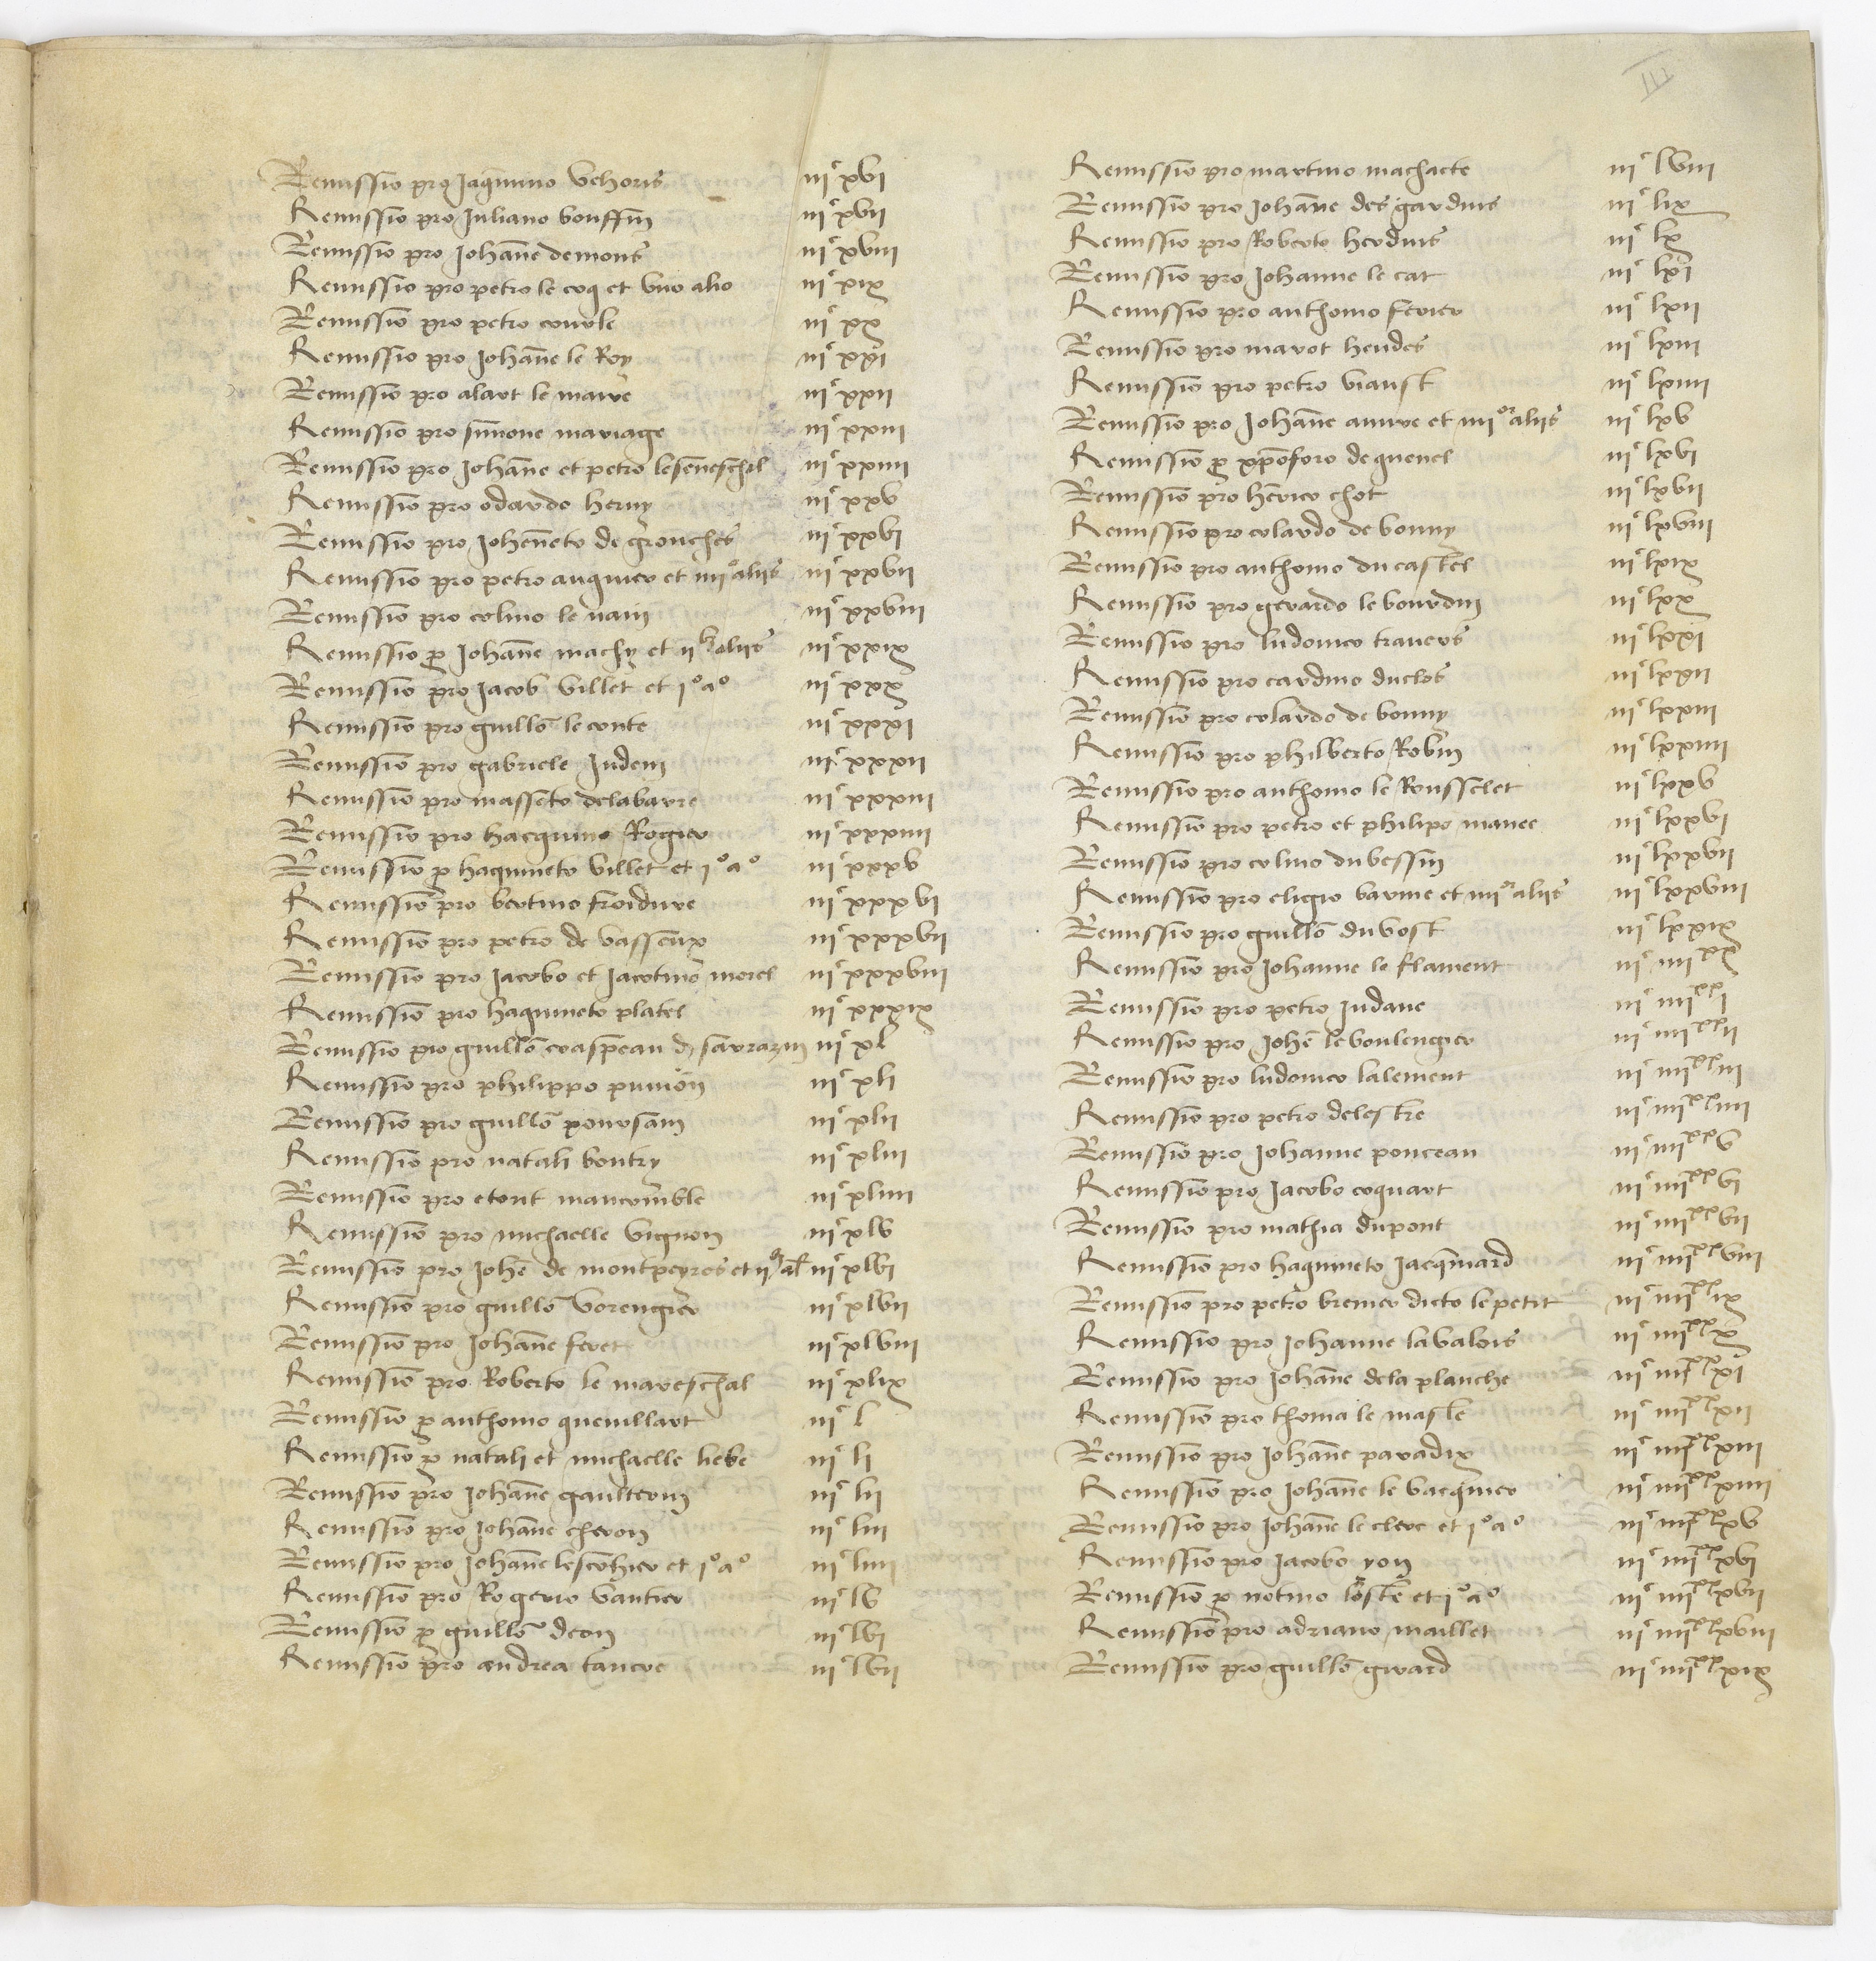 III
Remissio pro Jaquemino Vehoris iiiᶜ xvi
Remissio pro Juliano bouffin iiiᶜ xvii
Remissio pro Johanne demons iiiᶜ xviii
Remissio pro petro le coq et uno alio iiiᶜ xix
Remissio pro petro courle iiiᶜ xx
Remissio pro Johanne le Roy iiiᶜ xxi
Remissio pro alart le maire iiiᶜ xxii
Remissio pro simone mariage iiiᶜ xxiii
Remissio pro Johanne et petro leseneschil iiiᶜ xxiiii
Remissio pro odardo heruy iiiᶜ xxv
Remissio pro Johenneto de grouches iiiᶜ xxvi
Remissio pro petro auquier et iiiiᵒʳ aliis iiiᶜ xxvii
Remissio pro colino le nain iiiᶜ xxviii
Remissio pro Johanne machy et iibᵘˢ aliis iiiᶜ xxix
Remissio pro Jacob villet et i° a° iiiᶜ xxx
Remissio pro guillo le conte iiiᶜ xxxi
Remissio pro gabriele Judem iiiᶜ xxxii
Remissio pro masseto delabarre iiiᶜ xxxiii
Remissio pro hacquino Rogier iiiᶜ xxxiiii
Remissio p haquineto villet et i° a° iiiᶜ xxxv
Remissio pro bertino froidure iiiᶜ xxxvi
Remissio pro petro de vasseux iiiᶜ xxxvii
Remissio pro Jacobo et Jacotino morel iiiᶜ xxxviii
Remissio pro haquineto platel iiiᶜ xxxix
Remissio pro guillo craspeau d sarrazin iiiᶜ xl
Remissio pro philippo punion iiiᶜ xli
Remissio pro guillo poursain iiiᶜ xlii
Remissio pro natali boutry iiiᶜ xliii
Remissio pro etont maucomble iiiᶜ xliiii
Remissio pro michaelle vignon iiiᶜ xlv
Remissio pro Johe de montpeyros et ii al iiiᶜ xlvi
Remissio pro guillo Vorengier iiiᶜ xlvii
Remissio pro Johanne feret iiiᶜ xlviii
Remissio pro Roberto le mareschal iiiᶜ xlix
Remissio p anthonio quevillart iiiᶜ l
Remissio p natali et michaelle liebe iiiᶜ li
Remissio pro Johanne gaulteron iiiᶜ lii
Remissio pro Johanne cheron iiiᶜ liii
Remissio pro Johanne lescohier et i° a° iiiᶜ liiii
Remissio pro Rogerio vautier iiiᶜ lv
Remissio p guillo deon iiiᶜ lvi
Remissio pro andrea tancre iiiᶜ lvii
Remissio pro martino machacte iiiᶜ lviii
Remissio pro Johanne des gardins iiiᶜ lix
Remissio pro Roberto herduis iiiᶜ lx
Remissio pro Johanne le cat iiiᶜ lxi
Remissio pro anthonio ferrer iiiᶜ lxii
Remissio pro marot heudes iiiᶜ lxiii
Remissio pro petro viaust iiiᶜ lxiiii
Remissio pro Johanne auvre et iiiiᵒʳ aliis iiiᶜ lxv
Remissio p xpoforo de quenel iiiᶜ lxvi
Remissio pro henrico chot iiiᶜ lxvii
Remissio pro colardo de bonny iiiᶜ lxviii
Remissio pro anthonio du castel iiiᶜ lxix
Remissio pro gerardo le bourdin iiiᶜ lxx
Remissio pro ludovico travers iiiᶜ lxxi
Remissio pro cardino duclos iiiᶜ lxxii
Remissio pro colardo de bonny iiiᶜ lxxiii
Remissio pro philberto Robin iiiᶜ lxxiiii
Remissio pro anthonio le Rousselet iiiᶜ lxxv
Remissio pro petro et philipo manec iiiᶜ lxxvi
Remissio pro colino du bessin iiiᶜ lxxvii
Remissio pro eligio varine et iiiiᵒʳ aliis iiiᶜ lxxviii
Remissio pro guillo du bost iiiᶜ lxxix
Remissio pro Johanne le flament iiiᶜ iiiiˣˣ
Remissio pro petro Judane iiiᶜ iiiiˣˣ i
Remissio pro Johe le boulengier iiiᶜ iiiiˣˣ ii
Remissio pro ludovico lalement iiiᶜ iiiiˣˣ iii
Remissio pro petro delestre iiiᶜ iiiiˣˣ iiii
Remissio pro Johanne ponceau iiiᶜ iiiiˣˣ v
Remissio pro Jacobo coquart iiiᶜ iiiiˣˣ vi
Remissio pro mathia dupont iiiᶜ iiiiˣˣ vii
Remissio pro haquineto Jacqmard iiiᶜ iiiiˣˣ viii
Remissio pro petro bremer dicto le petit iiiᶜ iiiiˣˣ ix
Remissio pro Johanne la valois iiiᶜ iiiiˣˣ x
Remissio pro Johanne de la planche iiiᶜ iiiiˣˣ xi
Remissio pro thoma le maste iiiᶜ iiiiˣˣ xii
Remissio pro Johanne paradix iiiᶜ iiiiˣˣ xiii
Remissio pro Johanne le vacquier iiiᶜ iiiiˣˣ xiiii
Remissio pro Johanne le clerc et i° a° iiiᶜ iiiiˣˣ xv
Remissio pro Jacobo yon iiiᶜ iiiiˣˣ xvi
Remissio p notino loste et i° a° iiiᶜ iiiiˣˣ xvii
Remissio pro adriano maillet iiiᶜ iiiiˣˣ xviii
Remissio pro guillo girard iiiᶜ iiiiˣˣ xix